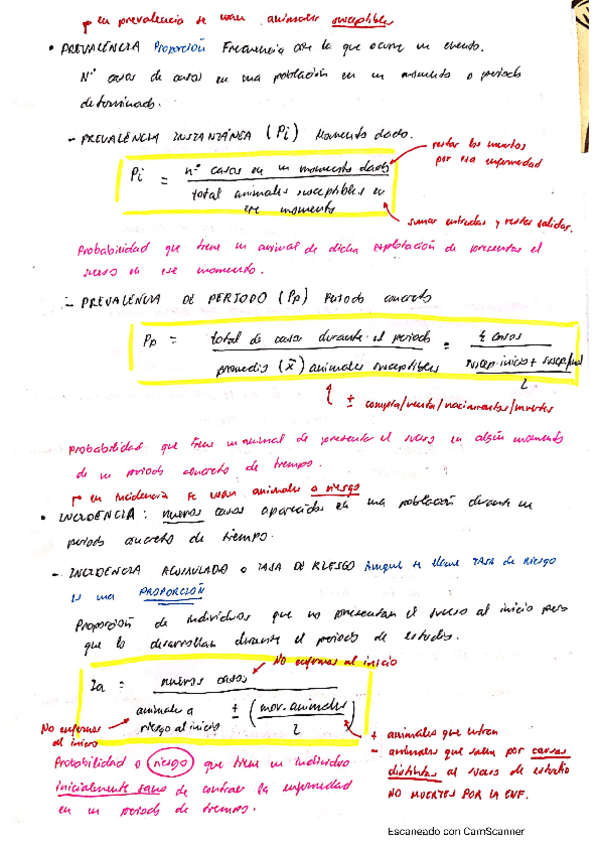 → en prevalencia se usan animales susceptibles
• PREVALÉNCIA Proporción Frecuencia con la que ocurre un evento.
Nº casos de casos en una población en un momento o periodo
determinado.
- PREVALÉNCIA INSTANTÁNEA (Pi) Momento dado.
restar los muertos
por esa enfermedad
Pi = nº casos en un momento dado
total animales susceptibles en
ese momento
sumar entradas y restar salidas.
Probabilidad que tiene un animal de dicha explotación de presentar el
suceso en ese momento.
- PREVALÉNCIA DE PERIODO (Pp) Periodo concreto
Pp = total de casos durante el periodo = casos
promedio (x̄) animales susceptibles suscep. inicio + suscep. final
2
± compra/venta/nacimientos/muertes
Probabilidad que tiene un animal de presentar el suceso en algún momento
de un periodo concreto de tiempo.
→ en Incidencia se usan animales a riesgo
• INCIDENCIA: nuevos casos aparecidos en una población durante un
periodo concreto de tiempo.
- INCIDENCIA ACUMULADA o TASA DE RIESGO Aunque se llame TASA de riesgo
es una PROPORCIÓN
Proporción de individuos que no presentan el suceso al inicio pero
que lo desarrollan durante el periodo de estudio.
No enfermos al inicio
Ia = nuevos casos
animales a
riesgo al inicio ± (mov. animales
2)
No enfermos
al inicio
+ animales que entran
- animales que salen por causas
distintas al suceso de estudio
NO MUERTES POR LA ENF.
Probabilidad o riesgo que tiene un individuo
inicialmente sano de contraer la enfermedad
en un periodo de tiempo.
Escaneado con CamScanner